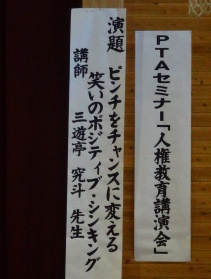 PTAセミナー「人権教育講演会」
演題
ピンチをチャンスに変える
笑いのポジティブ・シンキング
講師
三遊亭 究斗 先生